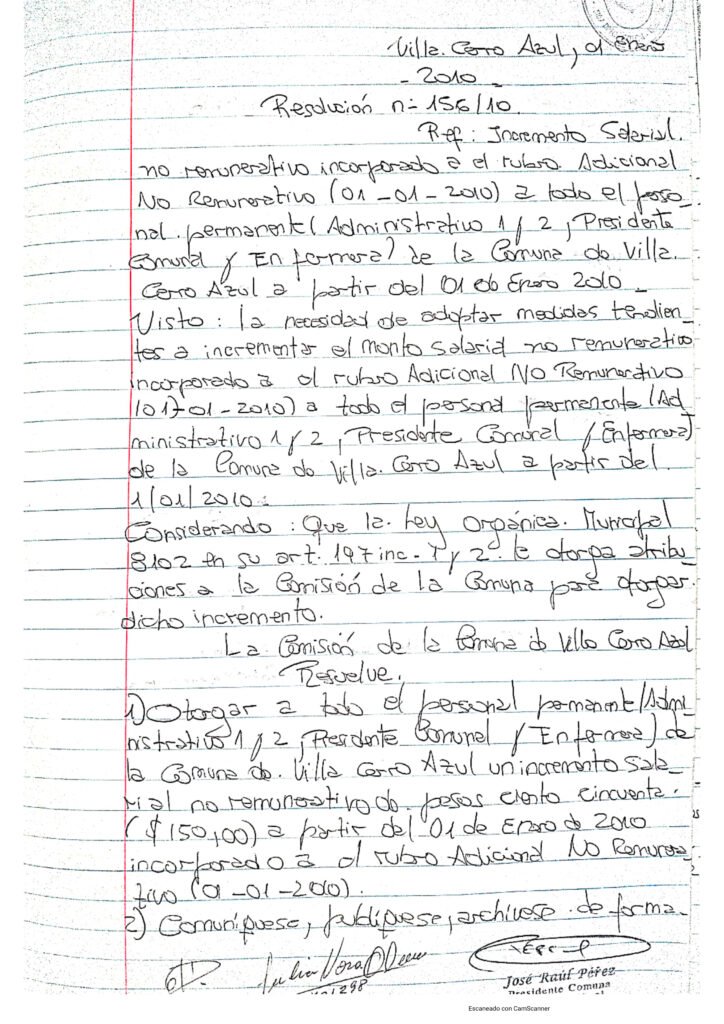 Villa. Cerro Azul, 01 Enero
- 2010 -
Resolución n- 156/10.
Ref: Incremento Salarial.
no remunerativo incorporado a el rubro Adicional
No Remunerativo (01-01-2010) a todo el perso_
nal permanente (Administrativo 1 y 2, Presidente
Comunal y Enfermera) de la Comuna do Villa.
Cerro Azul a partir del 01 de Enero 2010 _
Visto: la necesidad de adoptar medidas tendien_
tes a incrementar el monto salarial no remunerativo
incorporado a el rubro Adicional No Remunerativo
(01-01-2010) a todo el personal permanente (Ad_
ministrativo 1 y 2, Presidente Comunal y Enfermera)
de la Comuna do Villa. Cerro Azul a partir del.
1/01/2010.
Considerando: Que la. Ley Orgánica. Municipal
8102 en su art. 197 inc. 1 y 2 le otorga atribu_
ciones a la Comisión de la Comuna para otorgar.
dicho incremento.
La Comisión de la Comuna do Villa Cerro Azul
Resuelve.
1) Otorgar a todo el personal permanente (Admi_
nistrativo 1 y 2, Presidente Comunal y Enfermera) de
la Comuna do. Villa Cerro Azul un incremento Sala_
rial no remunerativo do pesos ciento cincuenta.
($150,00) a partir del 01 de Enero de 2010
incorporado a el rubro Adicional No Remunera
tivo (01-01-2010).
2) Comuníquese, publíquese, archívese de forma_
José Raúl Pérez
Presidente Comuna
Escaneado con CamScanner